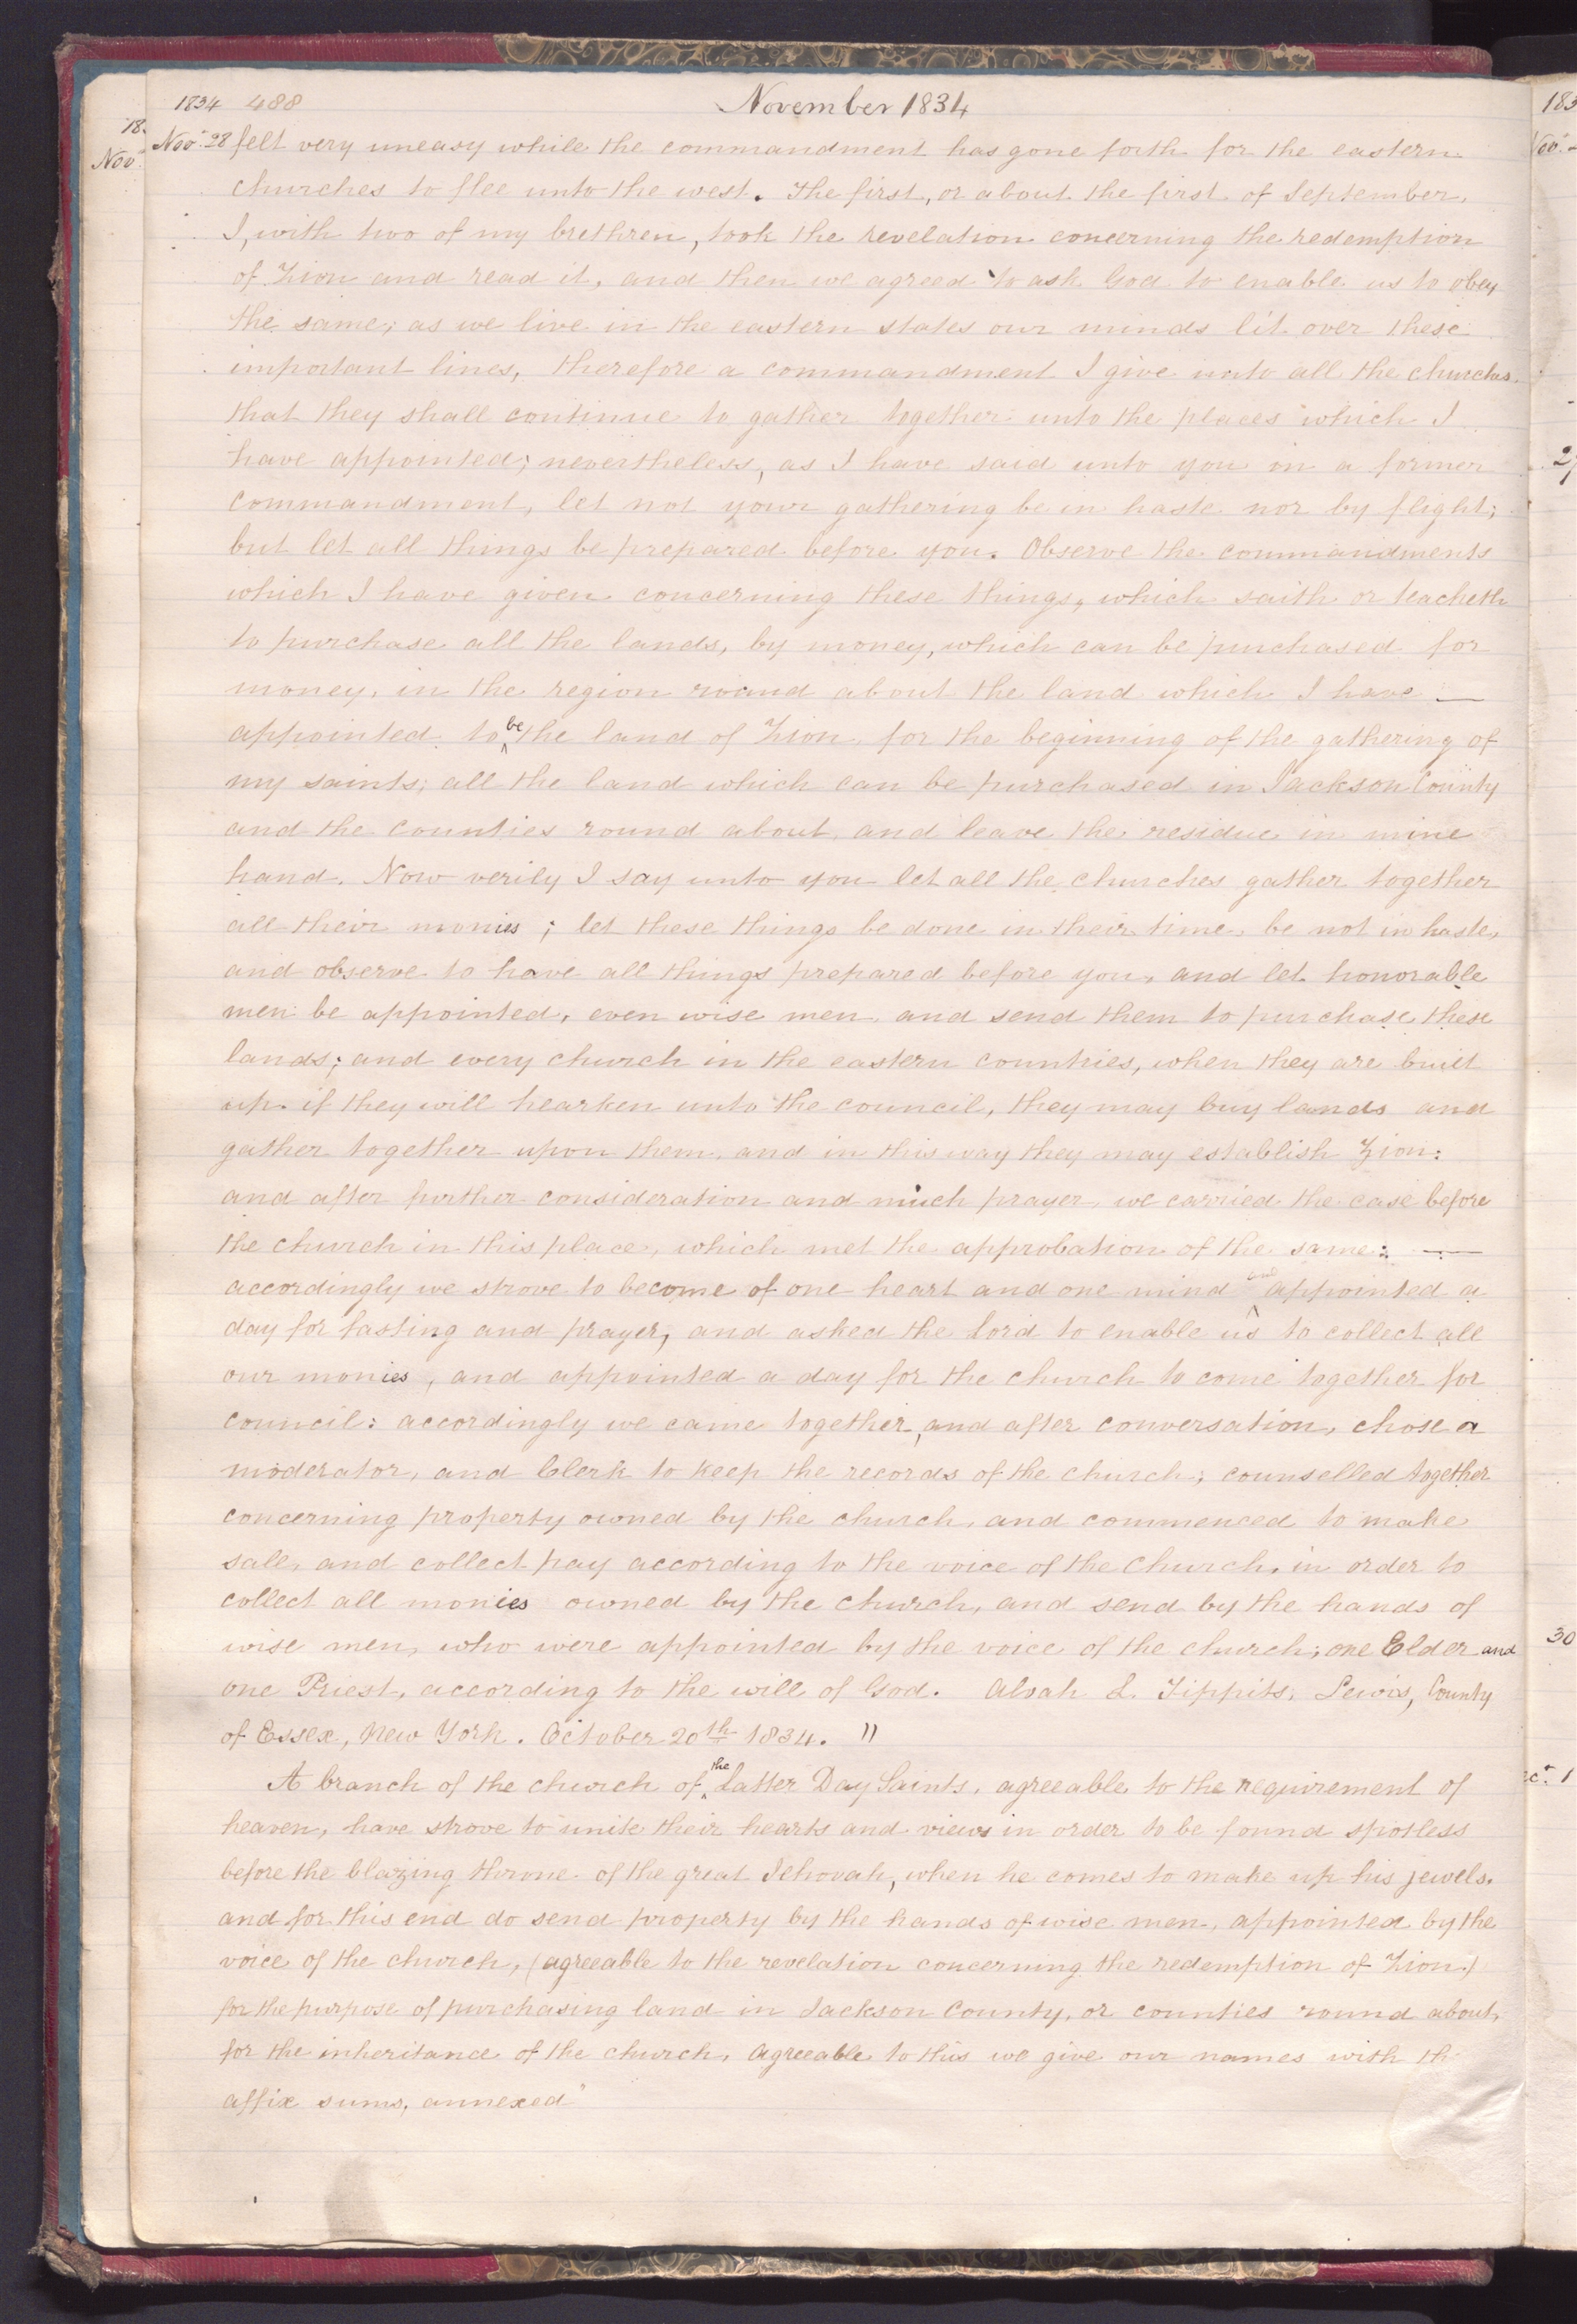 1834 488 November 1834
Nov. 28 felt very uneasy while the commandment has gone forth for the eastern
churches to flee unto the west. The first, or about the first of September,
I, with two of my brethren, took the revelation concerning the redemption
of Zion and read it, and then we agreed to ask God to enable us to obey
the same; as we live in the eastern states our minds lit over these
important lines, therefore a commandment I give unto all the churches.
that they shall continue to gather together unto the places which I
have appointed; nevertheless, as I have said unto you in a former
commandment, let not your gathering be in haste nor by flight;
but let all things be prepared before you. Observe the commandments
which I have given concerning these things, which saith or teacheth
to purchase all the lands, by money, which can be purchased for
money, in the region round about the land which I have —
appointed to be the land of Zion, for the beginning of the gathering of
my saints; all the land which can be purchased in Jackson County
and the counties round about, and leave the residue in mine
hand. Now verily I say unto you let all the churches gather together
all their monies; let these things be done in their time, be not in haste,
and observe to have all things prepared before you, and let honorable
men be appointed, even wise men, and send them to purchase these
lands; and every church in the eastern countries, when they are built
up, if they will hearken unto the council, they may buy lands and
gather together upon them, and in this way they may establish Zion:
and after further consideration and much prayer, we carried the case before
the church in this place, which met the approbation of the same: —
accordingly we strove to become of one heart and one mind and appointed a
day for fasting and prayer, and asked the Lord to enable us to collect all
our monies, and appointed a day for the church to come together for
council: accordingly we came together, and after conversation, chose a
moderator, and Clerk to keep the records of the church; counselled together
concerning property owned by the church, and commenced to make
sale, and collect pay according to the voice of the church, in order to
collect all monies owned by the church, and send by the hands of
wise men, who were appointed by the voice of the church; one Elder and
one Priest, according to the will of God. Alvah L. Tippits, Lewis, County
of Essex, New York. October 20th 1834. "
A branch of the church of the Latter Day Saints, agreeable to the requirement of
heaven, have strove to unite their hearts and views in order to be found spotless
before the blazing throne of the great Jehovah, when he comes to make up his jewels.
and for this end do send property by the hands of wise men, appointed by the
voice of the church, (agreeable to the revelation concerning the redemption of Zion.)
for the purpose of purchasing land in Jackson County, or counties round about,
for the inheritance of the church, agreeable to this we give our names with th
affix sums, annexed"
18
Nov.
183
Nov.
30
ec. 1